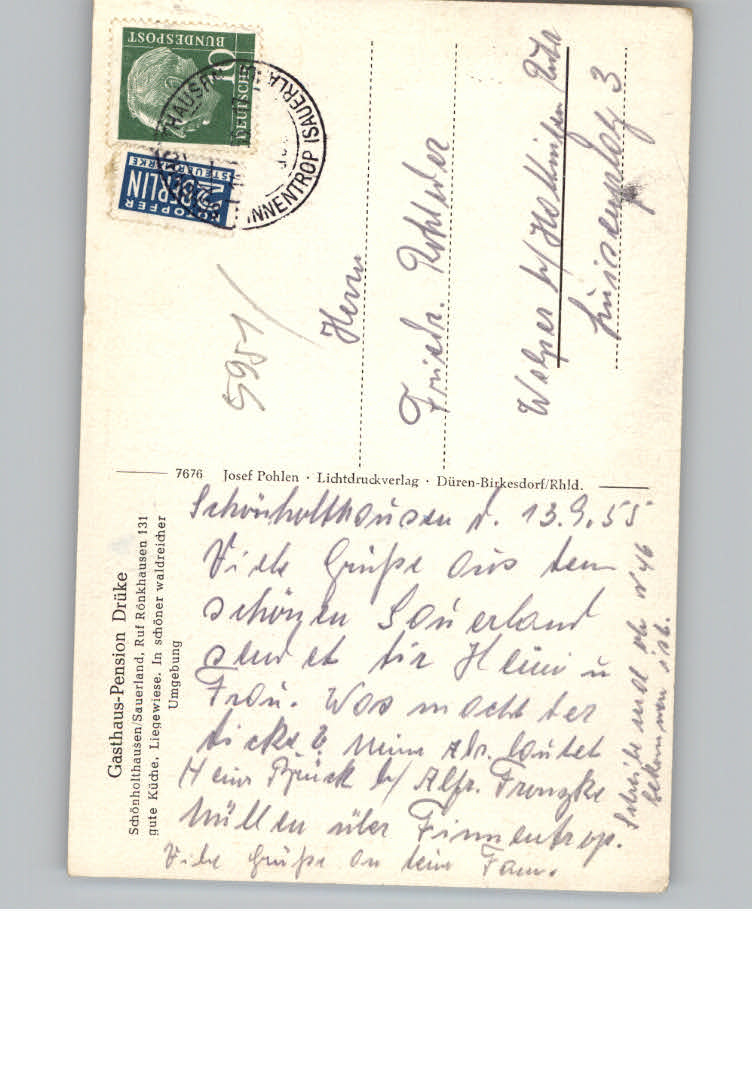 DEUTSCHE
BUNDESPOST
10
NOTOPFER
2 BERLIN
STEUERMARKE
FINNENTROP (SAUERLA
5951
Herrn
Friedr. Rohleder
Welper b/ Hattingen Ruhr
3
7676 Josef Pohlen · Lichtdruckverlag · Düren-Birkesdorf/Rhld.
Gasthaus-Pension Drüke
Schönholthausen/Sauerland, Ruf Rönkhausen 131
gute Küche, Liegewiese. In schöner waldreicher
Umgebung
Schönholthausen d. 13.9.55
Viele Grüße aus dem
schönen Sauerland
sendet dir Heini u
Frau. Was macht der
dicke? Meine Adr. lautet
Heinr b/ Alfr.
über Finnentrop.
Schreibe mal ob N 46
bekommen ist.
Viele Grüße an deine Fam.